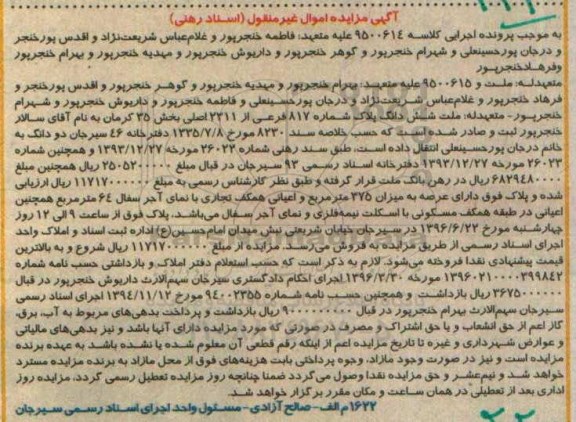 آگهی مزایده اموال غیرمنقول (اسناد رهنی)
به موجب پرونده اجرایی کلاسه ۹۵۰۰۶۱۴ علیه متعهد: فاطمه خنجرپور و غلام‌عباس شریعت‌نژاد و اقدس پورخنجر
و درجان پورحسینعلی و شهرام خنجرپور و گوهر خنجرپور و داریوش خنجرپور و مهدیه خنجرپور و بهرام خنجرپور
وفرهادخنجرپور
متعهدله: ملت و ۹۵۰۰۶۱۵ علیه متعهد: بهرام خنجرپور و مهدیه خنجرپور و گوهر خنجرپور و اقدس پورخنجر و
فرهاد خنجرپور و غلام‌عباس شریعت‌نژاد و درجان پورحسینعلی و فاطمه خنجرپور و داریوش خنجرپور و شهرام
خنجرپور- متعهدله: ملت شش دانگ پلاک شماره ۸۱۷ فرعی از ۲۳۱۱ اصلی بخش ۳۵ کرمان به نام آقای سالار
خنجرپور ثبت و صادر شده است که حسب خلاصه سند ۸۲۳۰ مورخ ۱۳۳۵/۷/۸ دفترخانه ۴۶ سیرجان دو دانگ به
خانم درجان پورحسینعلی انتقال داده است، طبق سند رهنی شماره ۲۶۰۲۲ مورخه ۱۳۹۳/۱۲/۲۷ و همچنین شماره
۲۶۰۲۳ مورخه ۱۳۹۳/۱۲/۲۷ دفترخانه اسناد رسمی ۹۳ سیرجان در قبال مبلغ ۲۵۰۵۲۰۰۰۰۰ ریال همچنین مبلغ
۶۸۲۹۴۸۰۰۰۰ ریال در رهن بانک ملت قرار گرفته و طبق نظر کارشناس رسمی به مبلغ ۱۱۷۱۷۰۰۰۰۰۰ ریال ارزیابی
شده و پلاک فوق دارای عرصه به میزان ۳۷۵ مترمربع و اعیانی همکف تجاری با نمای آجر سفال ۶۴ مترمربع همچنین
اعیانی در طبقه همکف مسکونی با اسکلت نیمه‌فلزی و نمای آجر سفال می‌باشد. پلاک فوق از ساعت ۹ الی ۱۲ روز
چهارشنبه مورخ ۱۳۹۶/۶/۲۲ در سیرجان خیابان شریعتی نبش میدان امام‌حسین(ع) اداره ثبت اسناد و املاک واحد
اجرای اسناد رسمی از طریق مزایده به فروش می‌رسد. مزایده از مبلغ ۱۱۷۱۷۰۰۰۰۰۰ ریال شروع و به بالاترین
قیمت پیشنهادی نقدا فروخته می‌شود. لازم به ذکر است که حسب استعلام دفتر املاک و بازداشتی حسب نامه شماره
۱۳۹۶۰۲۱۰۰۰۰۳۹۹۸۴۲ مورخه ۱۳۹۶/۲/۳۰ اجرای احکام دادگستری سیرجان سهم‌الارث داریوش خنجرپور در قبال
۳۶۷۵۰۰۰۰۰۰ ریال بازداشت و همچنین حسب نامه شماره ۹۴۰۰۲۳۵۵ مورخ ۱۳۹۴/۱۱/۱۲ اجرای اسناد رسمی
سیرجان سهم‌الارث بهرام خنجرپور در قبال ۹۰۰۰۰۰۰۰۰۰ ریال بازداشت و پرداخت بدهی‌های مربوط به آب، برق،
گاز اعم از حق انشعاب و یا حق اشتراک و مصرف در صورتی که مورد مزایده دارای آنها باشد و نیز بدهی‌های مالیاتی
و عوارض شهرداری و غیره تا تاریخ مزایده اعم از اینکه رقم قطعی آن معلوم شده یا نشده باشد به عهده برنده
مزایده است و نیز در صورت وجود مازاد، وجوه پرداختی بابت هزینه‌های فوق از محل مازاد به برنده مزایده مسترد
خواهد شد و نیم‌عشر و حق مزایده نقدا وصول می گردد ضمنا چنانچه روز مزایده تعطیل رسمی گردد، مزایده روز
اداری بعد از تعطیلی در همان ساعت و مکان مقرر برگزار خواهد شد.
۱۶۲۲ م الف- صالح آزادی- مسئول واحد اجرای اسناد رسمی سیرجان